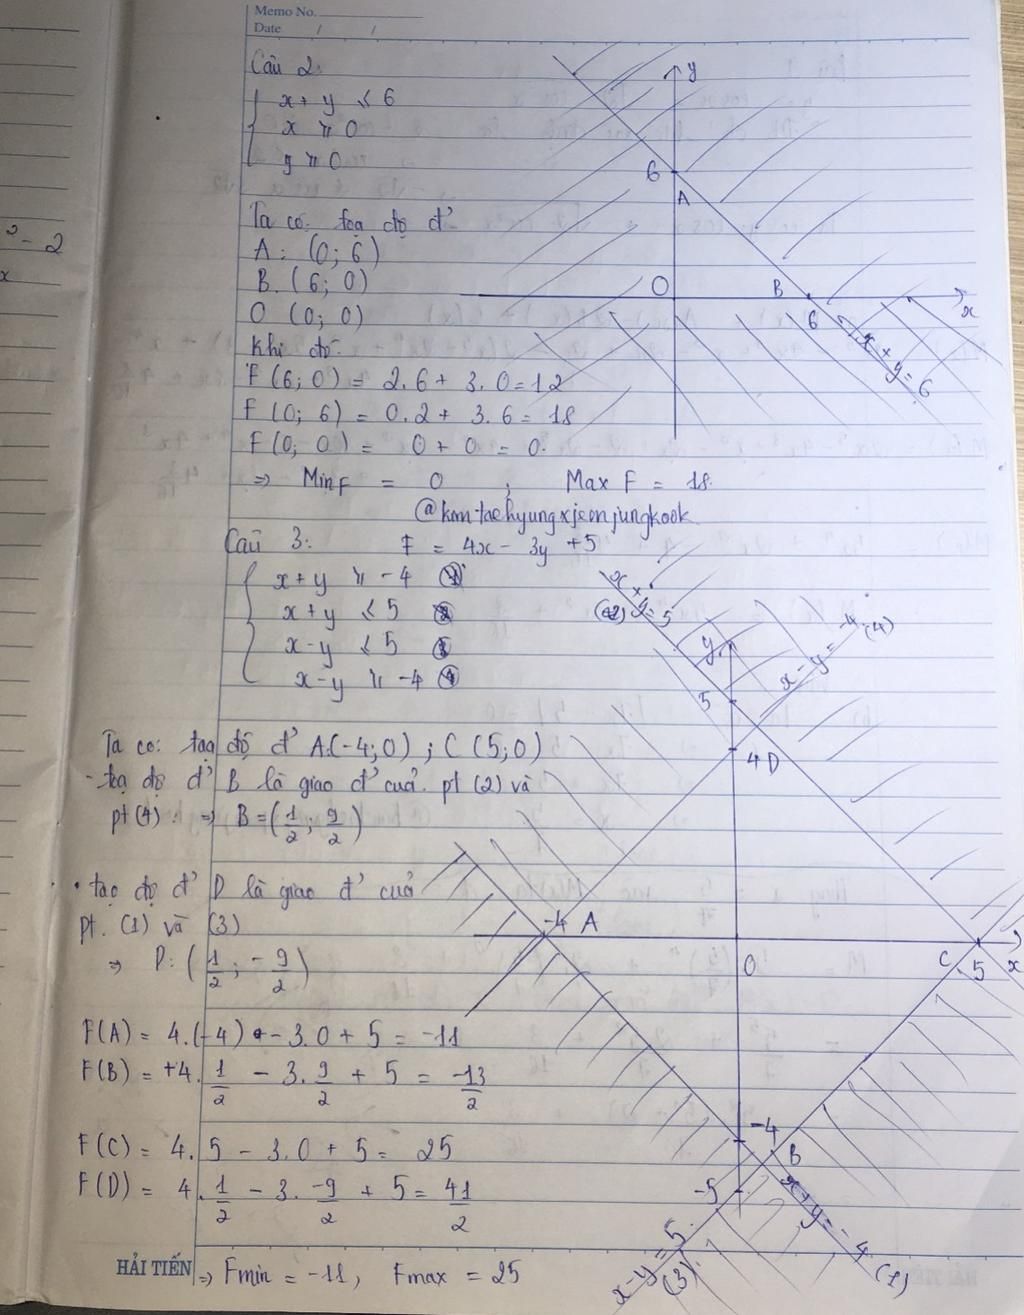 Memo No.
Date / /
Câu 2:
x + y ≤ 6
x ≥ 0
y ≥ 0
Ta có: toạ độ đ'
A: (0; 6)
B. (6; 0)
O (0; 0)
Khi đó:
F (6; 0) = 2.6 + 3.0 = 12
F (0; 6) = 0.2 + 3.6 = 18
F (0; 0) = 0 + 0 = 0.
=> Min F = 0 ; Max F = 18.
y
6
A
O
B
6
x
x + y = 6
@kimtaehyungxjeonjungkook
Câu 3: F = 4x - 3y + 5
x + y ≥ -4 (1)
x + y ≤ 5 (2)
x - y ≤ 5 (3)
x - y ≥ -4 (4)
Ta có: toạ độ đ' A(-4; 0) ; C (5; 0)
- toạ độ đ' B là giao đ' của pt (2) và
pt (4) : => B = (1/2 ; 9/2)
• toạ độ đ' D là giao đ' của
pt. (1) và (3)
=> D: (1/2 ; -9/2)
F(A) = 4.(-4) - 3.0 + 5 = -11
F(B) = +4. 1/2 - 3. 9/2 + 5 = -13/2
F(C) = 4. 5 - 3.0 + 5 = 25
F(D) = 4. 1/2 - 3. -9/2 + 5 = 41/2
=> Fmin = -11, Fmax = 25
x + y = 5
(2)
y
x - y = -4 (4)
5
4 D
-4 A
O
C 5 x
-4
B
-5
x + y = -4
(1)
x - y = 5
(3)
HẢI TIẾN
² - 2
x